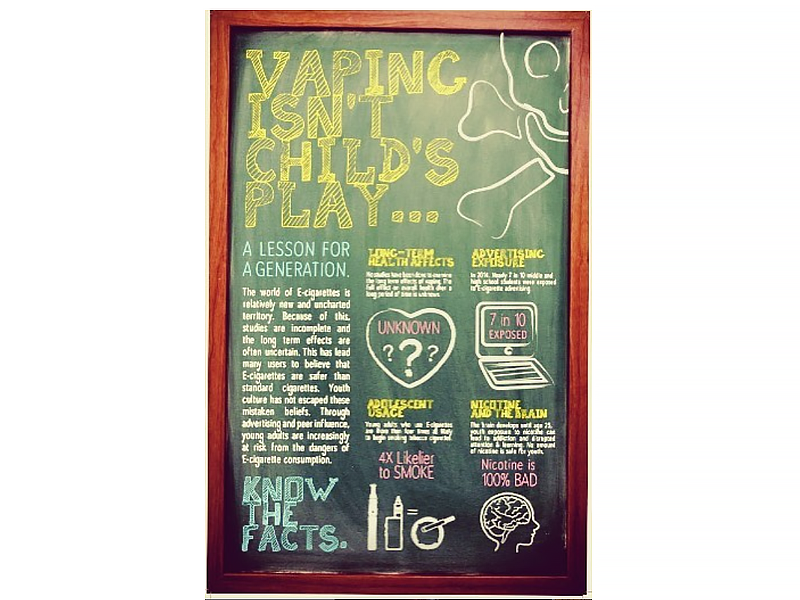 VAPING
ISN'T
CHILD'S
PLAY...
A LESSON FOR
A GENERATION.
The world of E-cigarettes is
relatively new and uncharted
territory. Because of this,
studies are incomplete and
the long term effects are
often uncertain. This has lead
many users to believe that
E-cigarettes are safer than
standard cigarettes. Youth
culture has not escaped these
mistaken beliefs. Through
advertising and peer influence,
young adults are increasingly
at risk from the dangers of
E-cigarette consumption.
KNOW
THE
FACTS.
LONG-TERM
HEALTH AFFECTS
No studies have been done to examine
the long term effects of vaping. The
full effect on overall health over a
long period of time is unknown.
UNKNOWN
? ? ?
ADOLESCENT
USAGE
Young adults who use E-cigarettes
are more than four times as likely
to begin smoking tobacco cigarettes.
4X Likelier
to SMOKE
=
ADVERTISING
EXPOSURE
In 2014, Nearly 7 in 10 middle and
high school students were exposed
to E-cigarette advertising.
7 in 10
EXPOSED
NICOTINE
AND THE BRAIN
The brain develops until age 25,
youth exposure to nicotine can
lead to addiction and disrupted
attention & learning. No amount
of nicotine is safe for youth.
Nicotine is
100% BAD